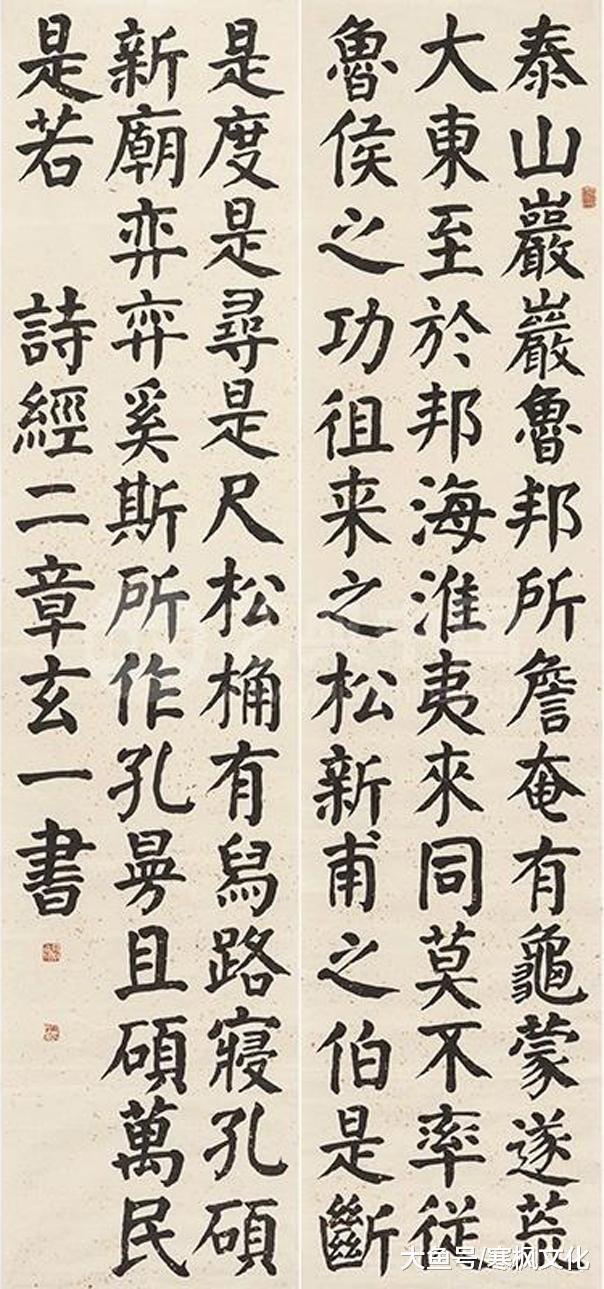 泰山巖巖魯邦所詹奄有龜蒙遂荒
大東至於邦海淮夷來同莫不率従
魯侯之功徂来之松新甫之伯是斷
是度是尋是尺松桷有舄路寢孔碩
新廟弈弈奚斯所作孔曼且碩萬民
是若 詩經二章玄一書
大鱼号/寒枫文化